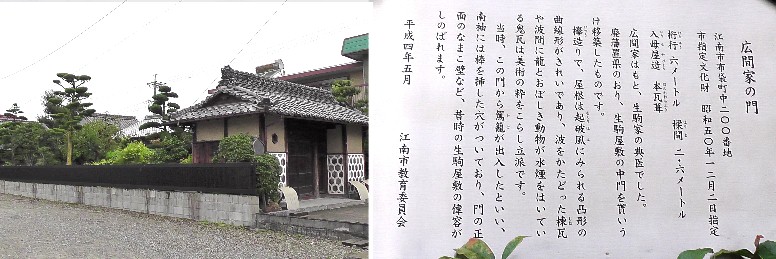 広間家の門
江南市布袋町中二〇〇番地
市指定文化財 昭和五〇年一二月二日指定
桁行 六メートル 梁間 二・六メートル
入母屋造 本瓦葺
広間家はもと、生駒家の典医でした。
廃藩置県のおり、生駒屋敷の中門を貰いう
け移築したものです。
棒造りで、屋根は起破風にみられる凸形の
曲線形がきれいであり、波をかたどった棟瓦
や波間に龍とおぼしき動物が水煙をはいてい
る鬼瓦は美術の粋をこらし立派です。
当時、この門から駕籠が出入したといい、
南袖には棒を挿した穴がついており、門の正
面のなまこ壁など、昔時の生駒屋敷の偉容が
しのばれます。
平成四年五月
江南市教育委員会